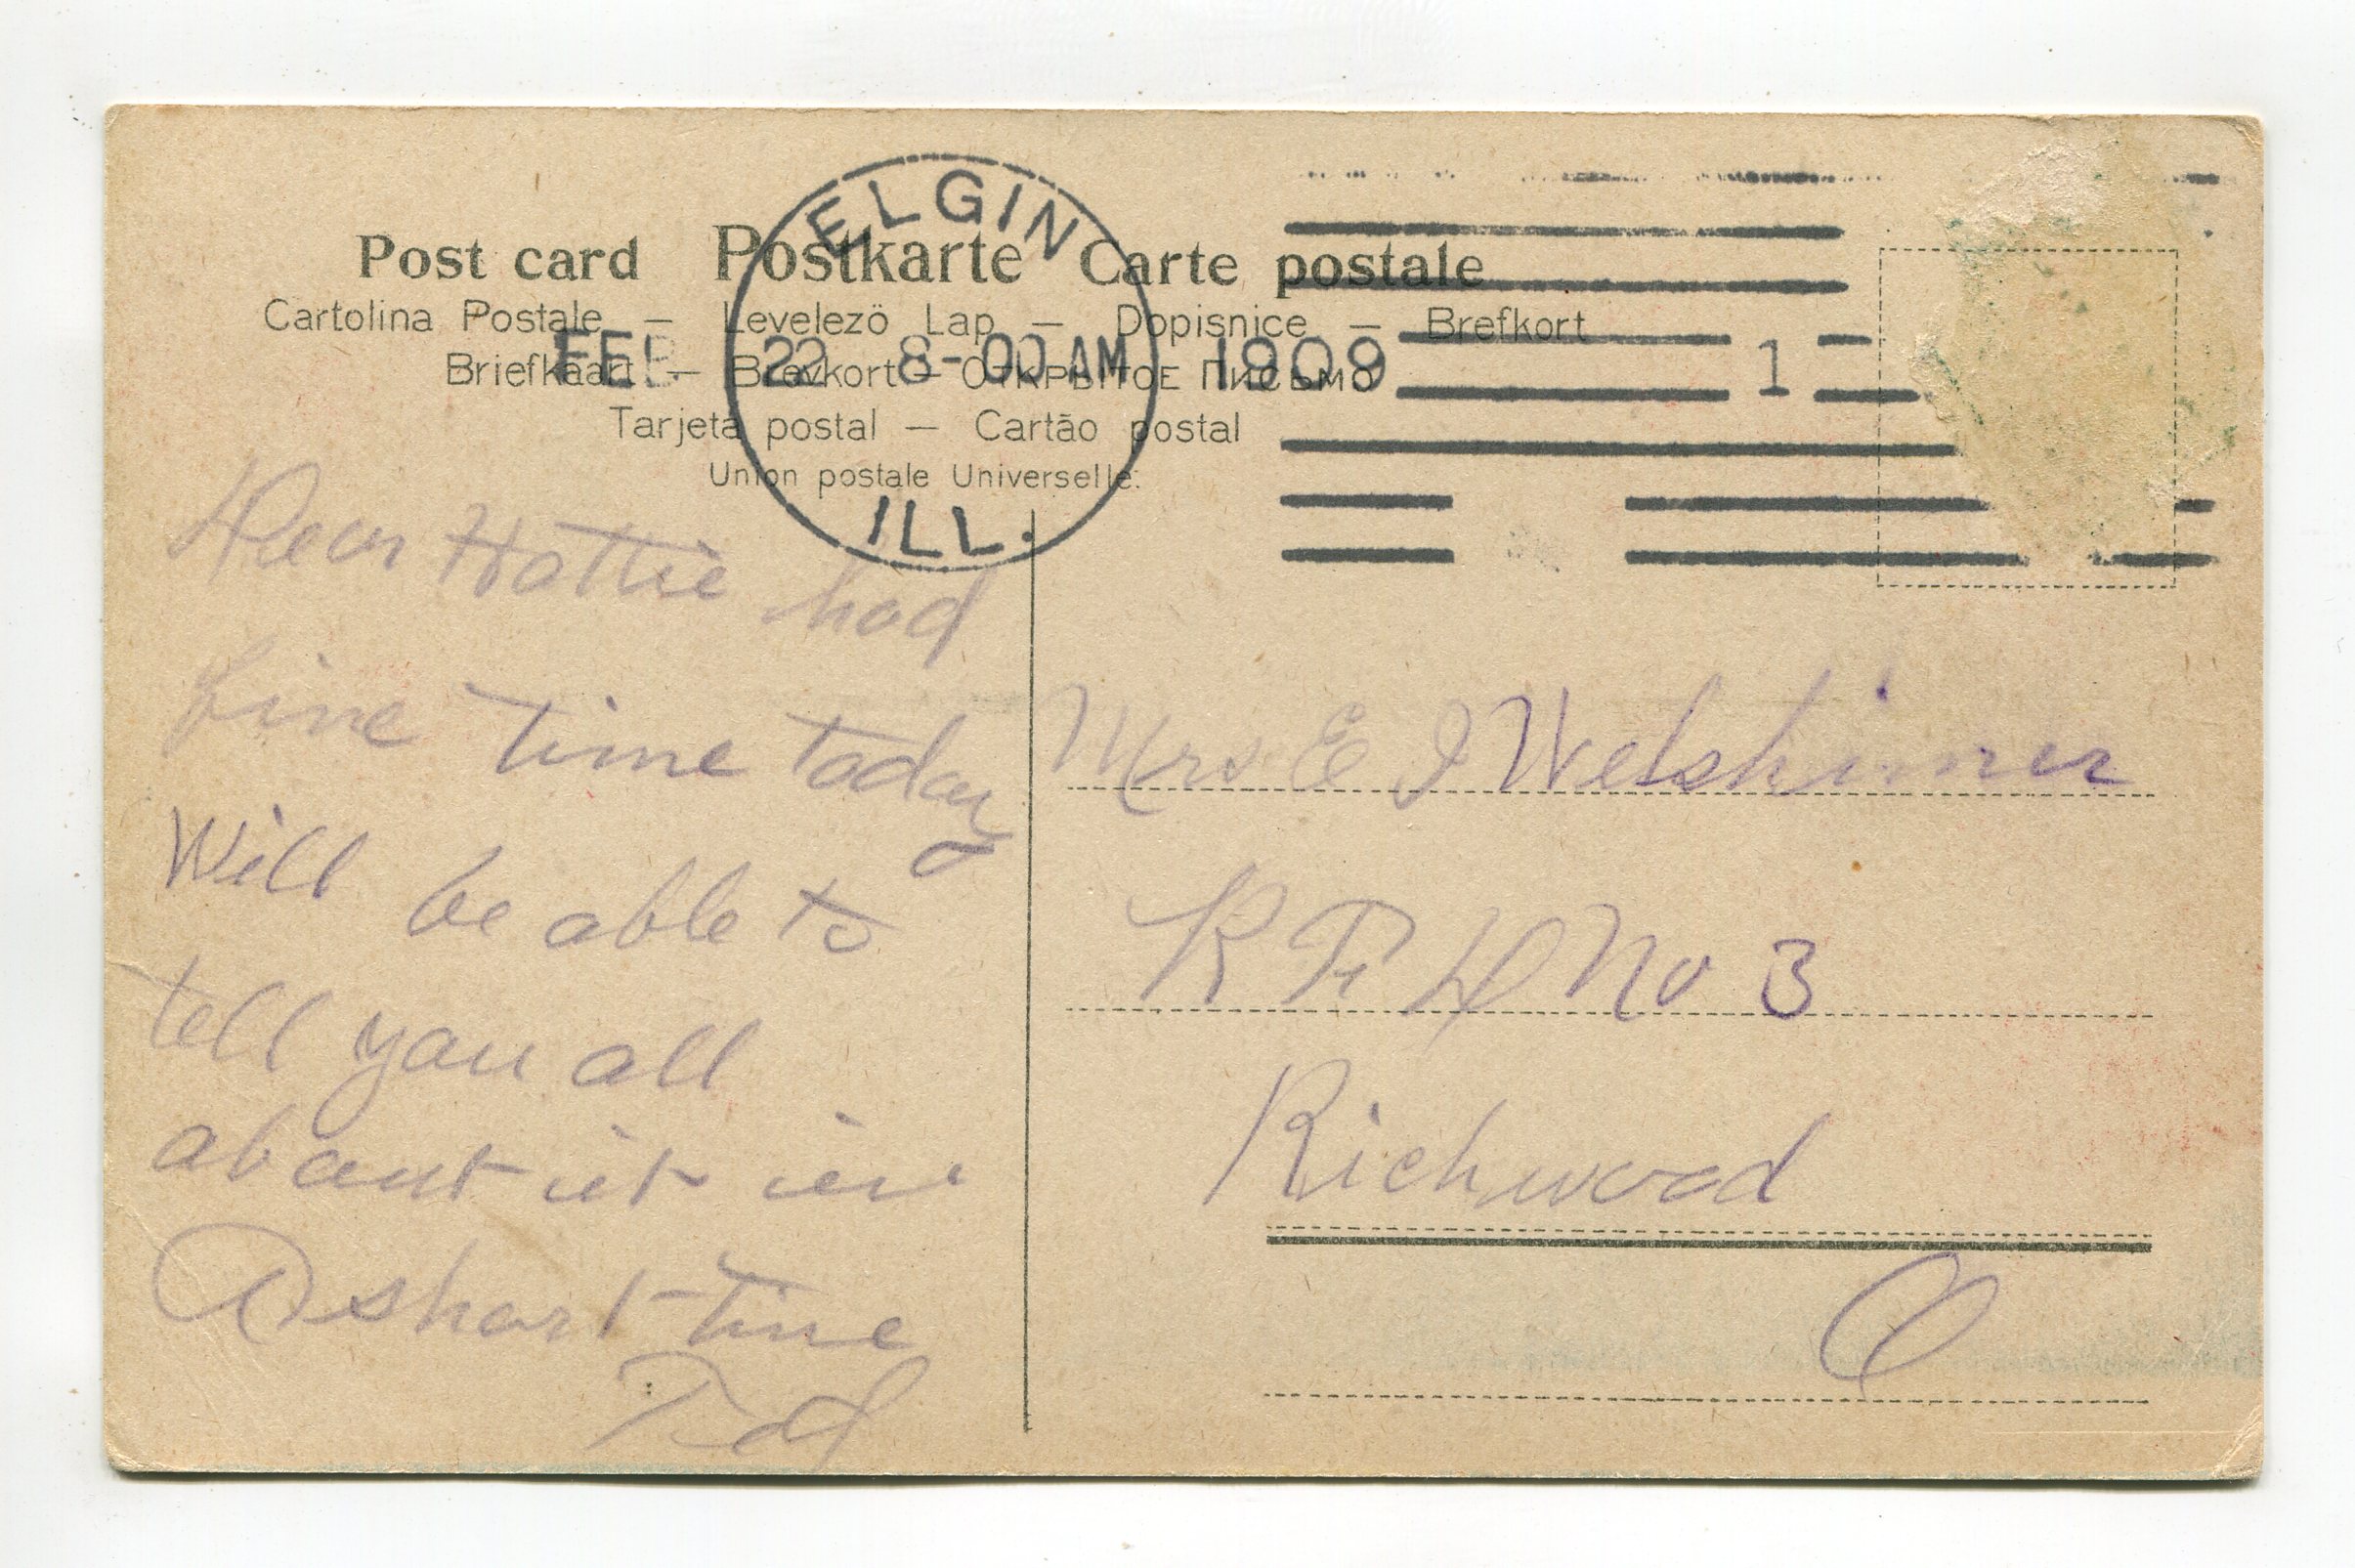 ELGIN
Post card Postkarte Carte postale
Cartolina Postale — Levelezö Lap — Dopisnice — Brefkort
FEB 22 8-00 AM 1909 1
Briefkaart — Brevkort — Открытое письмо
Tarjeta postal — Cartão postal
Union postale Universelle.
ILL.
Dear Hattie had
fine time today
Will be able to
tell you all
about it in
A short time
Mrs E J Welshimer
R F D No 3
Richwood
O